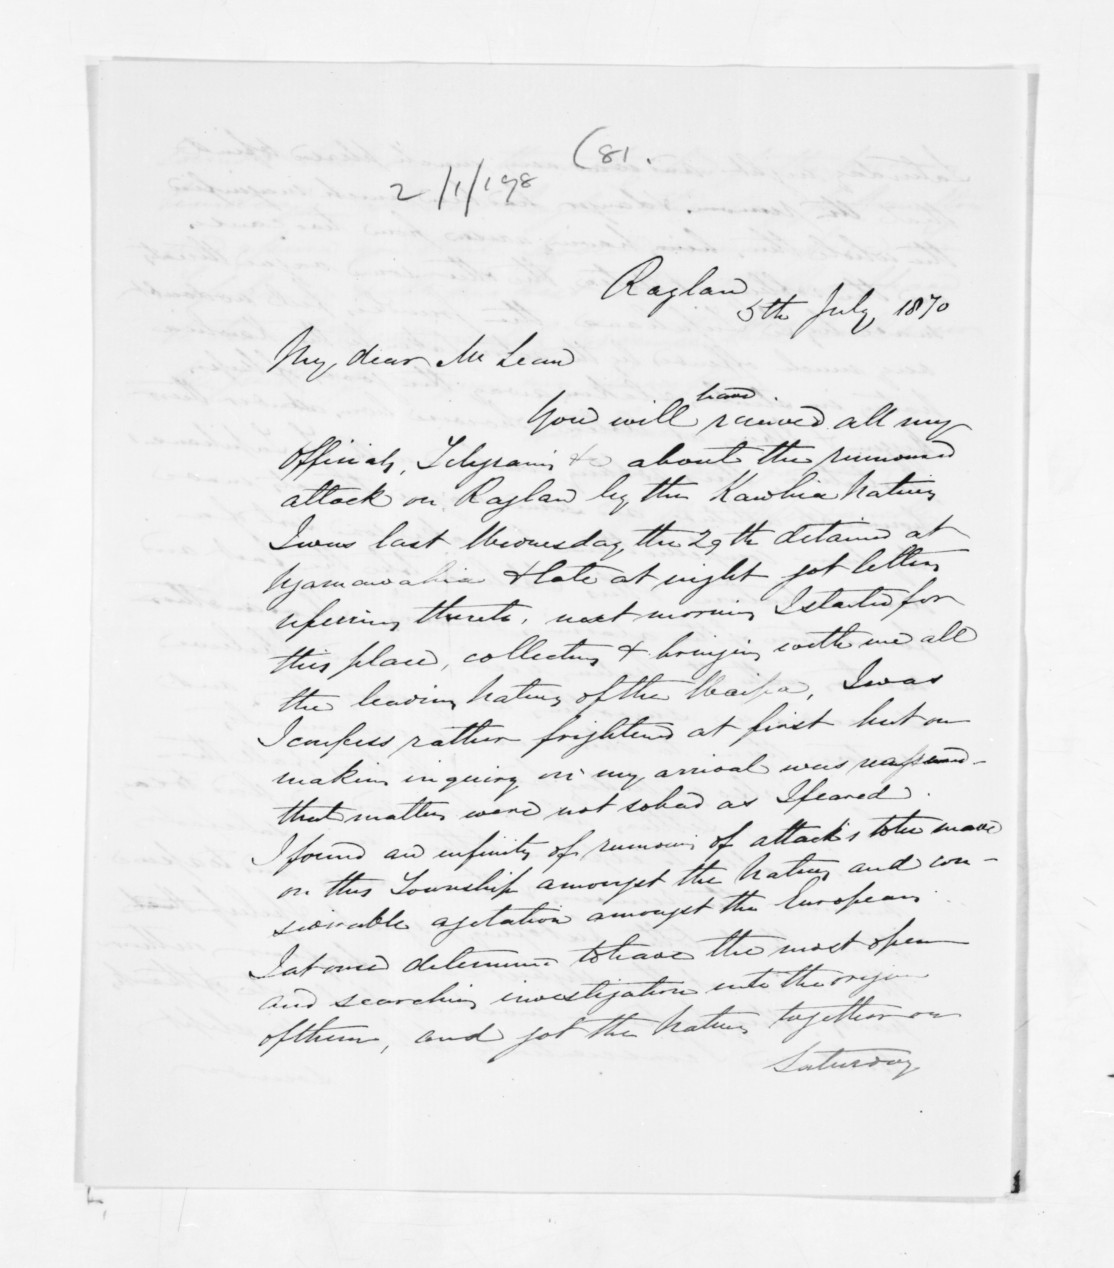 (81.
2/1/198
Raglan
5th July 1870
My dear McLean
You will have received all my
Officials, Telegrams &c about the rumoured
attack on Raglan by the Kawhia Natives
I was last Wednesday the 29th detained at
Ngaruawahia & late at night got letters
referring thereto, next morning I started for
this place, collecting & bringing with me all
the leading Natives of the Waipa, I was
I confess rather frightened at first but on
making inquiry on my arrival was
that matters were not so bad as I feared.
I found an infinity of rumours of attacks to be made
on this Township amongst the Natives and con-
siderable agitation amongst the Europeans.
I at once determined to have the most open
and searching investigation into the origin
of them, and got the Natives together on
Saturday